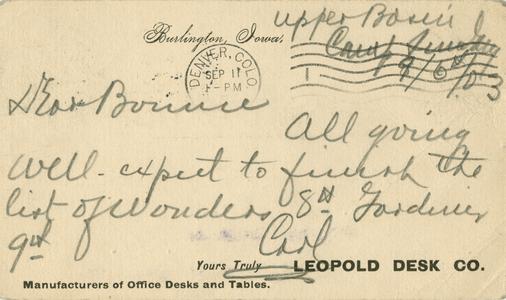 upper Basin
Burlington, Iowa,
DENVER, COLO.
SEP 11
1-PM
1
9/6
Dear Bonnie
All going
well - expect to finish the
list of wonders 8th Gardiner
9th
Carl
Yours Truly
LEOPOLD DESK CO.
Manufacturers of Office Desks and Tables.